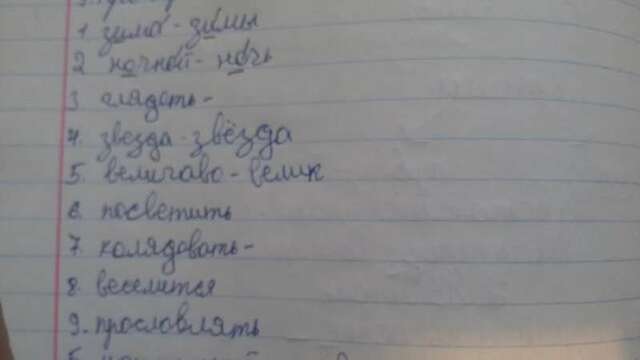 1 зима - зимы
2 ночной - ночь
3 глядать -
4. звезда - звёзда
5. величаво - велик
6. посветить
7. колядовать -
8. веселится
9. прославлять